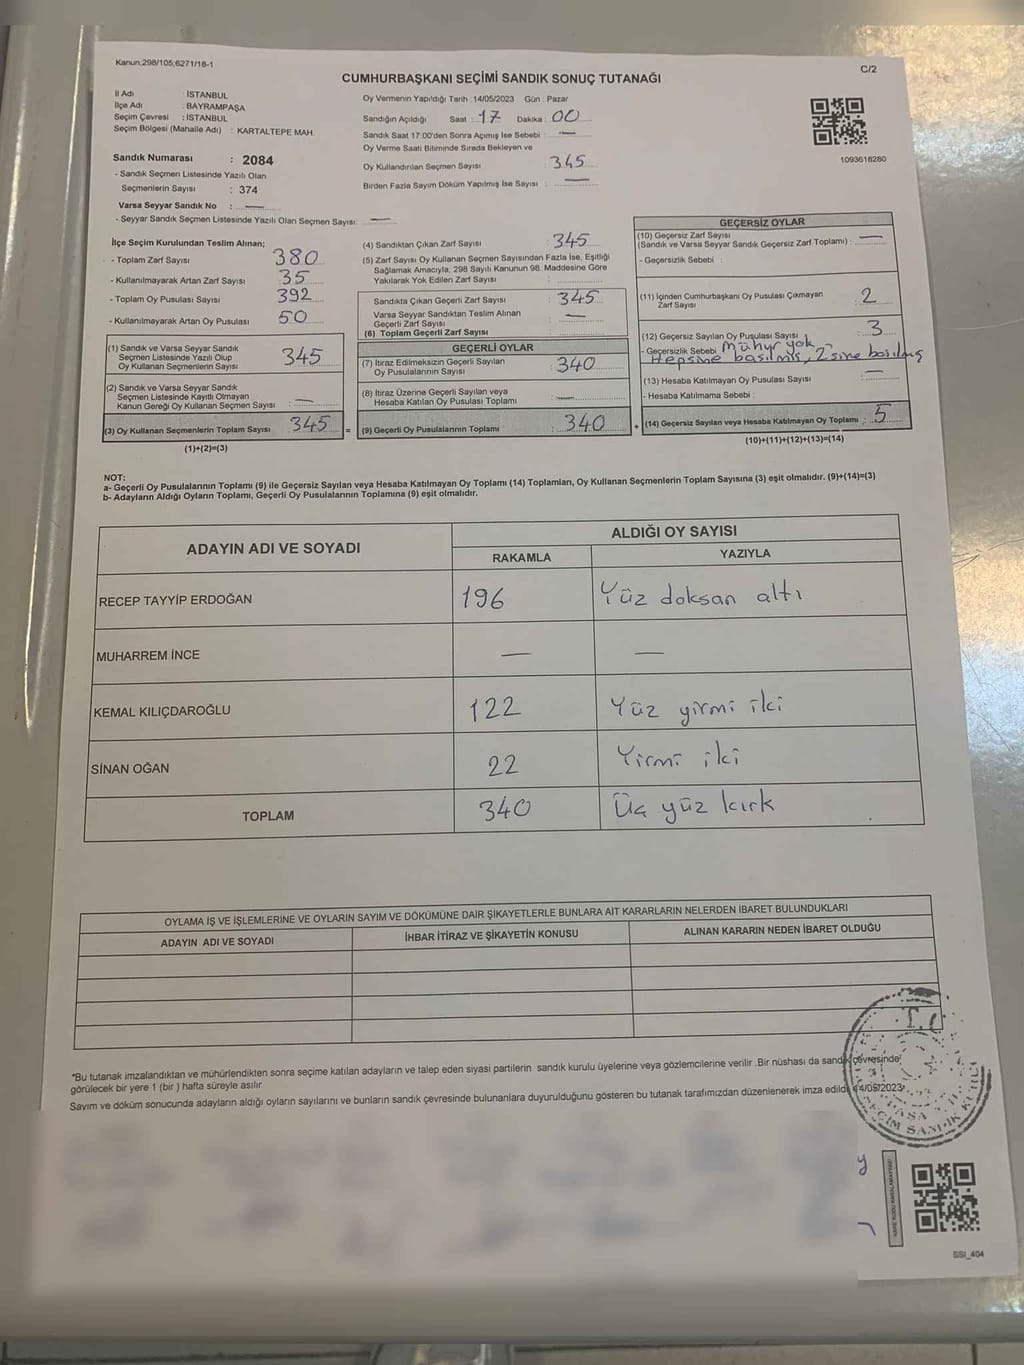 Kanun;298/105;6271/18-1
CUMHURBAŞKANI SEÇİMİ SANDIK SONUÇ TUTANAĞI
C/2
İl Adı : İSTANBUL
İlçe Adı : BAYRAMPAŞA
Seçim Çevresi : İSTANBUL
Seçim Bölgesi (Mahalle Adı) : KARTALTEPE MAH.
Sandık Numarası : 2084
- Sandık Seçmen Listesinde Yazılı Olan
Seçmenlerin Sayısı : 374
Varsa Seyyar Sandık No : —
- Seyyar Sandık Seçmen Listesinde Yazılı Olan Seçmen Sayısı: —
Oy Vermenin Yapıldığı Tarih : 14/05/2023 Gün : Pazar
Sandığın Açıldığı Saat : 17 Dakika : 00
Sandık Saat 17:00'den Sonra Açımış İse Sebebi : —
Oy Verme Saati Bitiminde Sırada Bekleyen ve
Oy Kullandırılan Seçmen Sayısı 345
Birden Fazla Sayım Döküm Yapılmış İse Sayısı : —
1093618280
İlçe Seçim Kurulundan Teslim Alınan;
- Toplam Zarf Sayısı 380
- Kullanılmayarak Artan Zarf Sayısı 35
- Toplam Oy Pusulası Sayısı 392
- Kullanılmayarak Artan Oy Pusulası 50
(1) Sandık ve Varsa Seyyar Sandık
Seçmen Listesinde Yazılı Olup
Oy Kullanan Seçmenlerin Sayısı 345
(2) Sandık ve Varsa Seyyar Sandık
Seçmen Listesinde Kayıtlı Olmayan
Kanun Gereği Oy Kullanan Seçmen Sayısı —
(3) Oy Kullanan Seçmenlerin Toplam Sayısı 345 =
(1)+(2)=(3)
(4) Sandıktan Çıkan Zarf Sayısı : 345
(5) Zarf Sayısı Oy Kullanan Seçmen Sayısından Fazla İse, Eşitliği
Sağlamak Amacıyla, 298 Sayılı Kanunun 98. Maddesine Göre
Yakılarak Yok Edilen Zarf Sayısı :
Sandıkta Çıkan Geçerli Zarf Sayısı : 345
Varsa Seyyar Sandıktan Teslim Alınan
Geçerli Zarf Sayısı : —
(6) Toplam Geçerli Zarf Sayısı :
GEÇERLİ OYLAR
(7) İtiraz Edilmeksizin Geçerli Sayılan
Oy Pusulalarının Sayısı : 340
(8) İtiraz Üzerine Geçerli Sayılan veya
Hesaba Katılan Oy Pusulası Toplamı : —
(9) Geçerli Oy Pusulalarının Toplamı : 340 +
GEÇERSİZ OYLAR
(10) Geçersiz Zarf Sayısı
(Sandık ve Varsa Seyyar Sandık Geçersiz Zarf Toplamı) : —
- Geçersizlik Sebebi :
(11) İçinden Cumhurbaşkanı Oy Pusulası Çıkmayan
Zarf Sayısı 2
(12) Geçersiz Sayılan Oy Pusulası Sayısı : 3
- Geçersizlik Sebebi : Mühür yok,
Hepsine basılmış, 2'sine basılmış
(13) Hesaba Katılmayan Oy Pusulası Sayısı : —
- Hesaba Katılmama Sebebi :
(14) Geçersiz Sayılan veya Hesaba Katılmayan Oy Toplamı : 5
(10)+(11)+(12)+(13)=(14)
NOT:
a- Geçerli Oy Pusulalarının Toplamı (9) ile Geçersiz Sayılan veya Hesaba Katılmayan Oy Toplamı (14) Toplamları, Oy Kullanan Seçmenlerin Toplam Sayısına (3) eşit olmalıdır. (9)+(14)=(3)
b- Adayların Aldığı Oyların Toplamı, Geçerli Oy Pusulalarının Toplamına (9) eşit olmalıdır.
ADAYIN ADI VE SOYADI ALDIĞI OY SAYISI
RAKAMLA YAZIYLA
RECEP TAYYİP ERDOĞAN 196 Yüz doksan altı
MUHARREM İNCE — —
KEMAL KILIÇDAROĞLU 122 Yüz yirmi iki
SİNAN OĞAN 22 Yirmi iki
TOPLAM 340 Üç yüz kırk
OYLAMA İŞ VE İŞLEMLERİNE VE OYLARIN SAYIM VE DÖKÜMÜNE DAİR ŞİKAYETLERLE BUNLARA AİT KARARLARIN NELERDEN İBARET BULUNDUKLARI
ADAYIN ADI VE SOYADI İHBAR İTİRAZ VE ŞİKAYETİN KONUSU ALINAN KARARIN NEDEN İBARET OLDUĞU
*Bu tutanak imzalandıktan ve mühürlendikten sonra seçime katılan adayların ve talep eden siyasi partilerin sandık kurulu üyelerine veya gözlemcilerine verilir. Bir nüshası da sandık çevresinde
görülecek bir yere 1 (bir ) hafta süreyle asılır.
Sayım ve döküm sonucunda adayların aldığı oyların sayılarını ve bunların sandık çevresinde bulunanlara duyurulduğunu gösteren bu tutanak tarafımızdan düzenlenerek imza edildi. 14/05/2023
T.C.
SSI_404